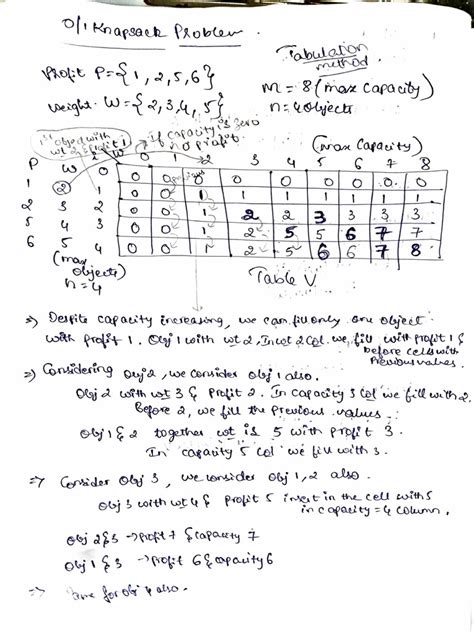 0/1 Knapsack Problem.
Tabulation method.
Profit P = {1, 2, 5, 6}
Weight W = {2, 3, 4, 5}
m = 8 (max capacity)
n = 4 objects
1st object with wt 2 & profit 1
if capacity is zero no profit
(max capacity)
P W i W 0 1 2 3 4 5 6 7 8
0 0 0 0 0 0 0 0 0 0
1 2 1 0 0 1 1 1 1 1 1 1
2 3 2 0 0 1 2 2 3 3 3 3
5 4 3 0 0 1 2 5 5 6 7 7
6 5 4 0 0 1 2 5 6 6 7 8
(max objects)
n = 4
Table V
=> Despite capacity increasing, we can fill only one object
with profit 1. Obj 1 with wt 2, In wt 2 col. we fill with profit 1 &
before cells with Previous values.
=> Considering Obj 2, we consider obj 1 also.
Obj 2 with wt 3 & profit 2. In capacity 3 col we fill with 2.
Before 2, we fill the previous values.
Obj 1 & 2 together wt is 5 with profit 3.
In capacity 5 col we fill with 3.
=> Consider obj 3, we consider obj 1, 2 also.
Obj 3 with wt 4 & profit 5 insert in the cell with 5
in capacity = 4 column.
Obj 2 & 3 -> profit 7 & capacity 7
Obj 1 & 3 -> profit 6 & capacity 6
=> Same for obj 4 also.